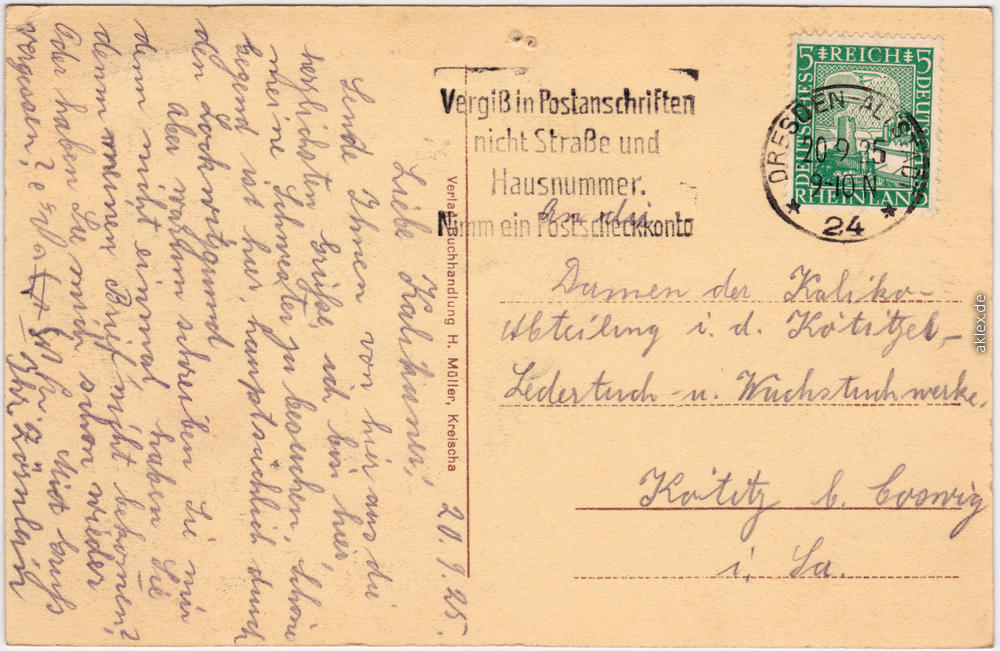 20.9.25.
Liebe Kolhamer,
Sende Ihnen von hier aus die
herzlichsten Grüße, ich bin hier,
meine Schwester zu besuchen, schöne
Gegend ist hier, hauptsächlich durch
den Lockwitzgrund.
Aber warum schreiben Sie mir
denn nicht einmal haben Sie
denn meinen Brief nicht bekommen?
Oder haben Sie mich schon wieder
vergessen?
Mit Gruß
Ihr. Zörnlein
Verlag Buchhandlung H. Müller, Kreischa
Vergiß in Postanschriften
nicht Straße und
Hausnummer.
Nimm ein Postscheckkonto
5 REICH 5
DEUTSCHES
DEUTSCHES
RHEINLAND
DRESDEN-ALTST.
20.9.25
9-10 N
* 24 *
an die
Damen der Kaliko-
Abteilung i. d. Kötitzer-
Ledertuch- u. Wachstuchwerke.
Kötitz b. Coswig
i. Sa.
aklex.de